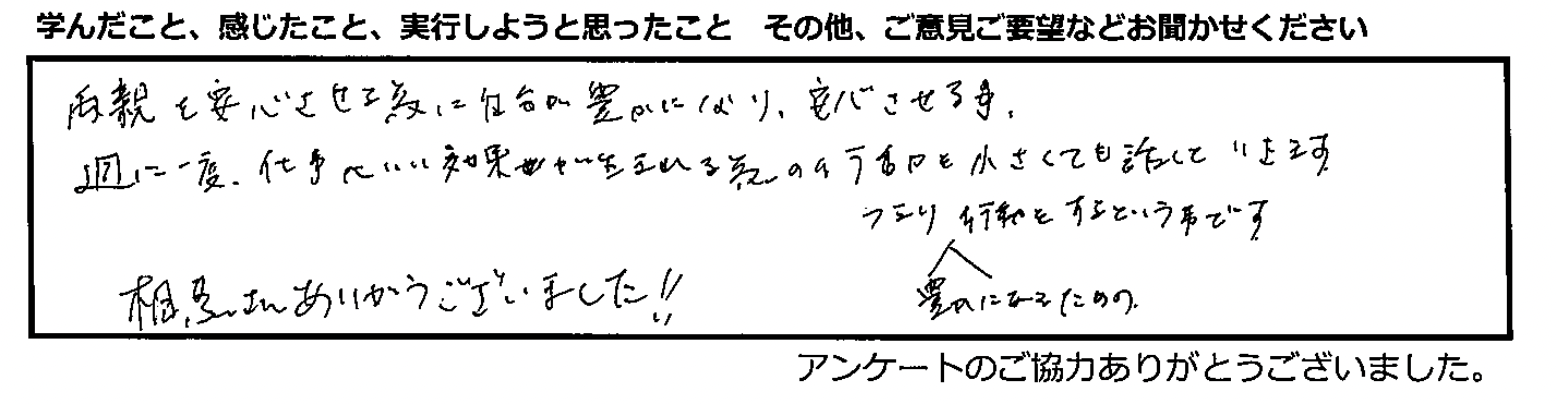 学んだこと、感じたこと、実行しようと思ったこと その他、ご意見ご要望などお聞かせください
両親を安心させる為に自分が豊かになり、安心させる事。
週に一度、仕事へいい効果が生まれる為の行動を小さくても話していきます
つまり行動をするという事です
豊かになるための
相馬さんありがとうございました!!
アンケートのご協力ありがとうございました。